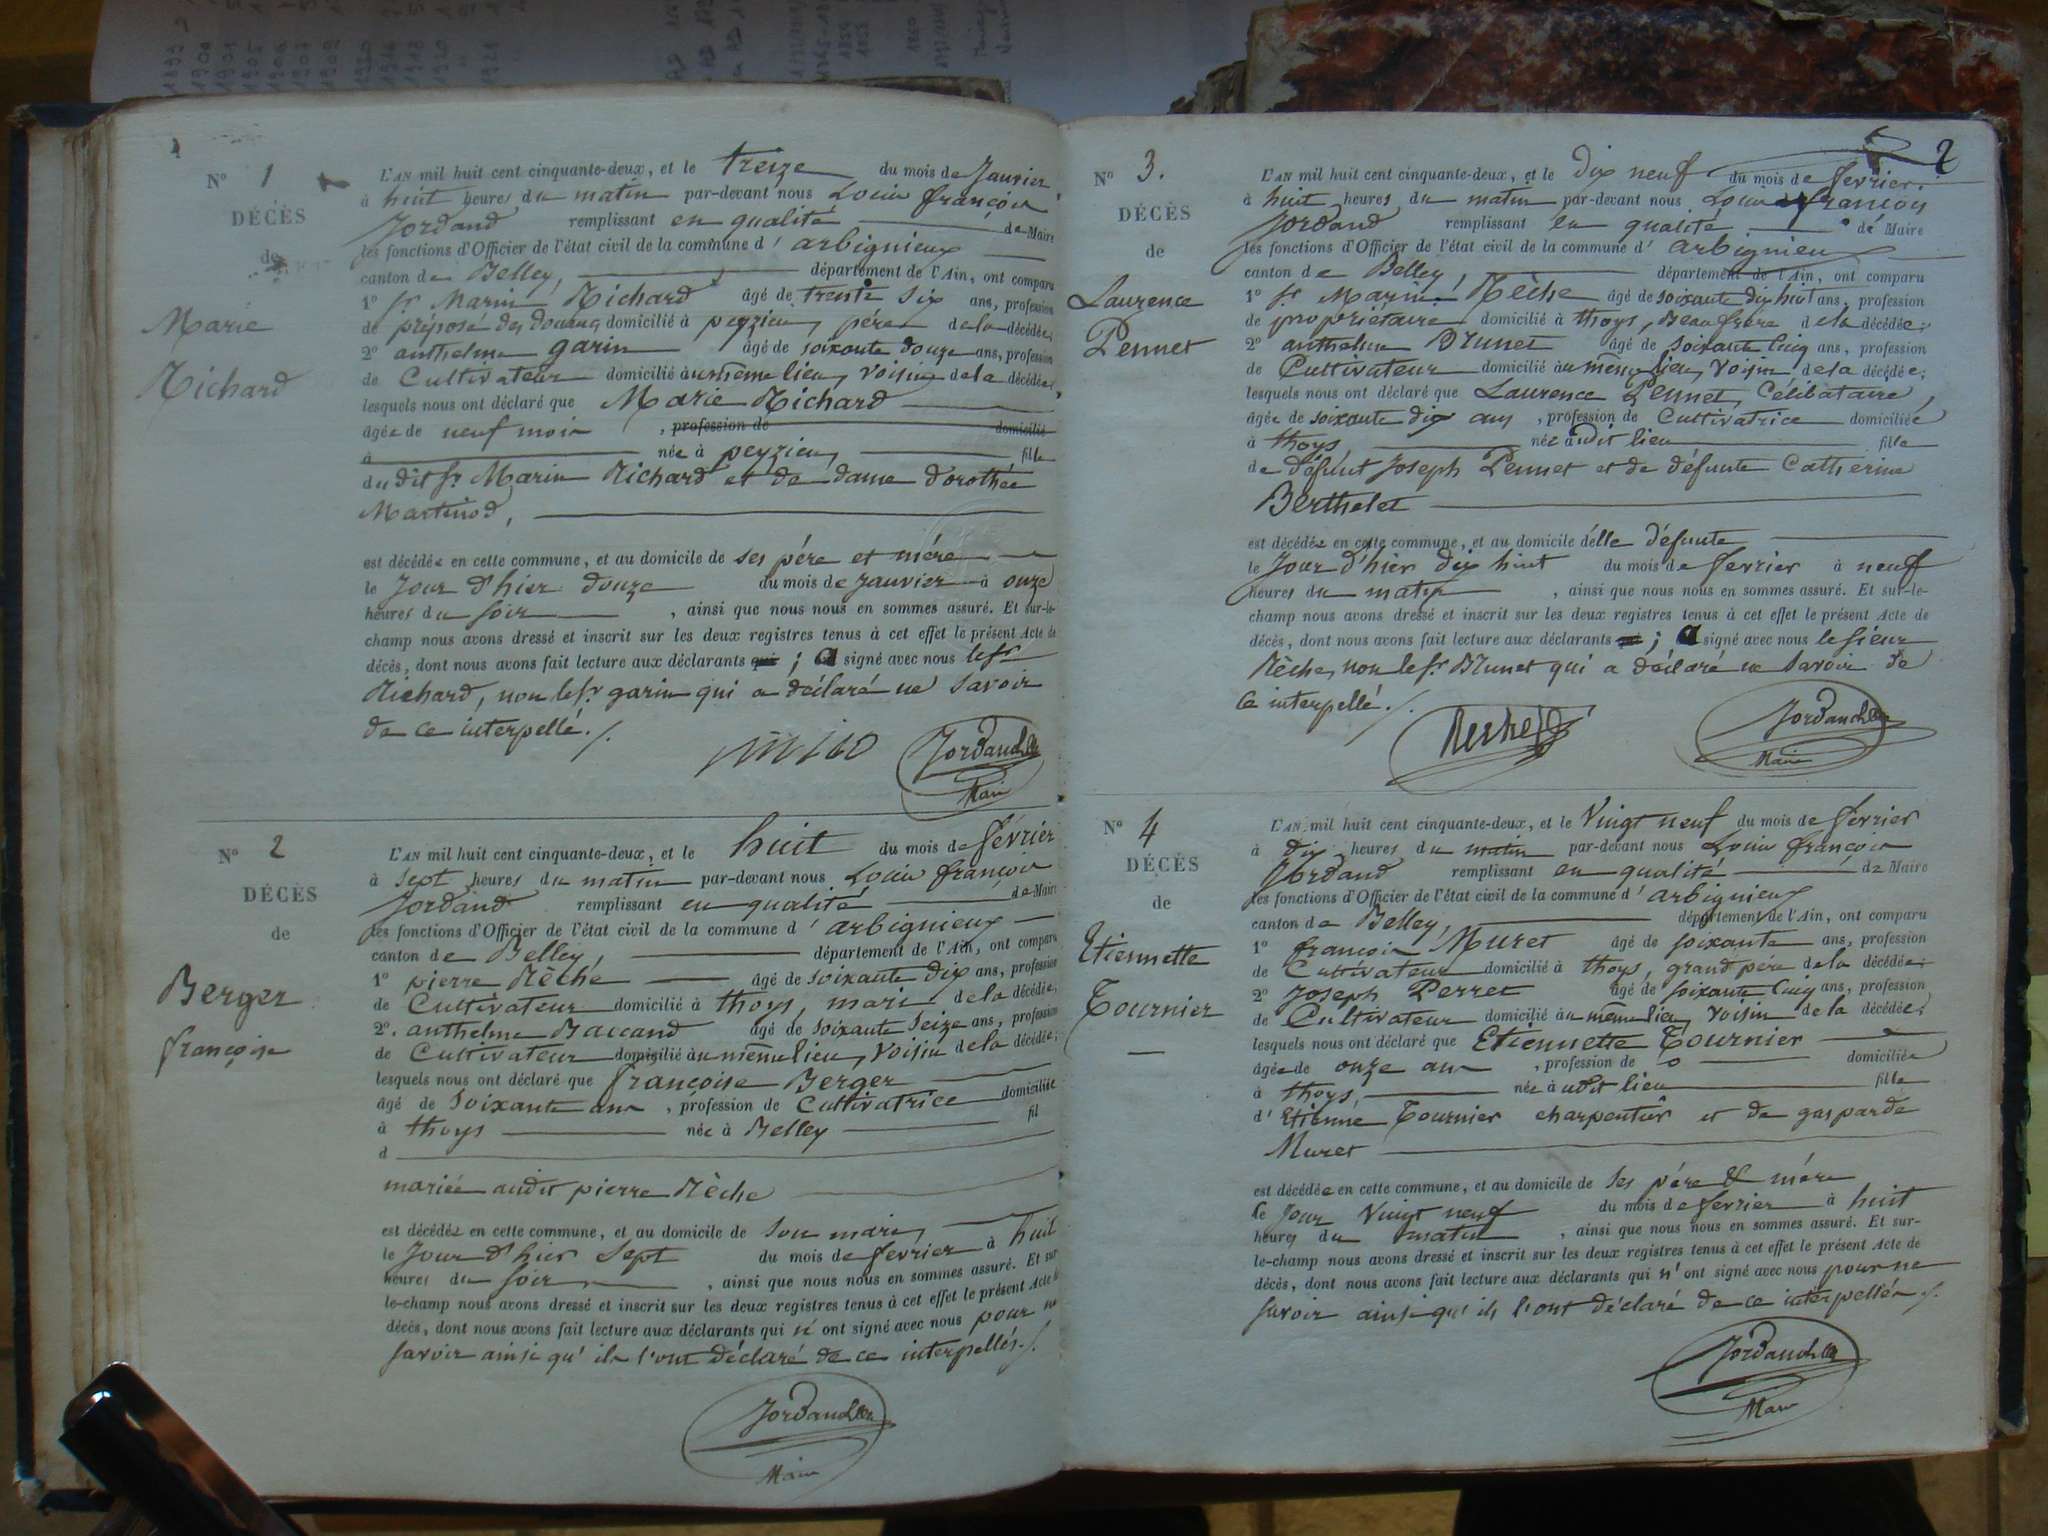 1
N° 1
DÉCÈS
de
Marie
Richard
L'AN mil huit cent cinquante-deux, et le treize du mois de Janvier
à huit heures du matin par-devant nous Louis françois
Jordand remplissant en qualité de Maire
les fonctions d'Officier de l'état civil de la commune d' arbignieux
canton de Belley, département de l'Ain, ont comparu
1° sr. Marin Richard âgé de trente six ans, profession
de préposé des douanes domicilié à peyzieu, père de la décédée;
2° anthelme garin âgé de soixante douze ans, profession
de Cultivateur domicilié au même lieu, voisin de la décédée,
lesquels nous ont déclaré que Marie Richard
âgée de neuf mois , profession de domicilié
à née à peyzieu, fille
du dit sr. Marin Richard et de dame dorothée
Martinod,
est décédée en cette commune, et au domicile de ses père et mère
le Jour d'hier douze du mois de janvier à onze
heures du soir , ainsi que nous nous en sommes assuré. Et sur-le-
champ nous avons dressé et inscrit sur les deux registres tenus à cet effet le présent Acte de
décès, dont nous avons fait lecture aux déclarants qui ; a signé avec nous le sr
Richard, non le sr. garin qui a déclaré ne savoir
de ce interpellé./.
Jordand
Maire
N° 2
DÉCÈS
de
Berger
françoise
L'AN mil huit cent cinquante-deux, et le huit du mois de février
à sept heures du matin par-devant nous Louis françois
Jordand remplissant en qualité de Maire
les fonctions d'Officier de l'état civil de la commune d' arbignieux
canton de Belley, département de l'Ain, ont comparu
1° pierre Rèche âgé de soixante dix ans, profession
de Cultivateur domicilié à thoys, mari de la décédée,
2°. anthelme Baccand âgé de soixante seize ans, profession
de Cultivateur domicilié au même lieu, voisin de la décédée;
lesquels nous ont déclaré que françoise Berger
âgé de soixante ans , profession de Cultivatrice domiciliée
à thoys née à Belley fil
d
mariée audit pierre Rèche
est décédée en cette commune, et au domicile de son mari,
le Jour d'hier sept du mois de fevrier à huit
heures du soir , ainsi que nous nous en sommes assuré. Et sur
le-champ nous avons dressé et inscrit sur les deux registres tenus à cet effet le présent Acte de
décès, dont nous avons fait lecture aux déclarants qui n' ont signé avec nous pour ne
savoir ainsi qu'ils l'ont déclaré de ce interpellés./.
Jordand
Maire
2
N° 3.
DÉCÈS
de
Laurence
Pennet
L'AN mil huit cent cinquante-deux, et le dix neuf du mois de fevrier.
à huit heures du matin par-devant nous Louis françois
Jordand remplissant en qualité de Maire
les fonctions d'Officier de l'état civil de la commune d' arbignieux
canton de Belley, département de l'Ain, ont comparu
1° sr. Marin Rèche âgé de soixante dix huit ans, profession
de propriétaire domicilié à thoys, Beaufrère de la décédée;
2° anthelme Brunet âgé de soixante cinq ans, profession
de Cultivateur domicilié au même lieu, voisin de la décédée;
lesquels nous ont déclaré que Laurence Pennet, Célibataire,
âgée de soixante dix ans , profession de Cultivatrice domiciliée
à thoys née audit lieu fille
de défunt Joseph Pennet et de défunte Catherine
Berthelet
est décédée en cette commune, et au domicile d'elle défunte
le Jour d'hier dix huit du mois de fevrier à neuf
heures du matin , ainsi que nous nous en sommes assuré. Et sur-le-
champ nous avons dressé et inscrit sur les deux registres tenus à cet effet le présent Acte de
décès, dont nous avons fait lecture aux déclarants ; a signé avec nous le sieur
Rèche, non le sr. Brunet qui a déclaré ne savoir de
ce interpellé./.
Jordand
Maire
N° 4
DÉCÈS
de
Etiennette
Tournier
L'AN mil huit cent cinquante-deux, et le Vingt neuf du mois de février
à dix heures du matin par-devant nous Louis françois
Jordand remplissant en qualité de Maire
les fonctions d'Officier de l'état civil de la commune d' arbignieux
canton de Belley, département de l'Ain, ont comparu
1° françois Muret âgé de soixante ans, profession
de Cultivateur domicilié à thoys, grand père de la décédée;
2° Joseph Perret âgé de soixante cinq ans, profession
de Cultivateur domicilié au même lieu, voisin de la décédée,
lesquels nous ont déclaré que Etiennette Tournier
âgée de onze ans , profession de o domiciliée
à thoys, née audit lieu fille
d' Etienne Tournier charpentier et de gasparde
Muret
est décédée en cette commune, et au domicile de ses père & mère
le Jour Vingt neuf du mois de fevrier à huit
heures du matin , ainsi que nous nous en sommes assuré. Et sur-
le-champ nous avons dressé et inscrit sur les deux registres tenus à cet effet le présent Acte de
décès, dont nous avons fait lecture aux déclarants qui n' ont signé avec nous pour ne
savoir ainsi qu'ils l'ont déclaré de ce interpellés./.
Jordand
Maire